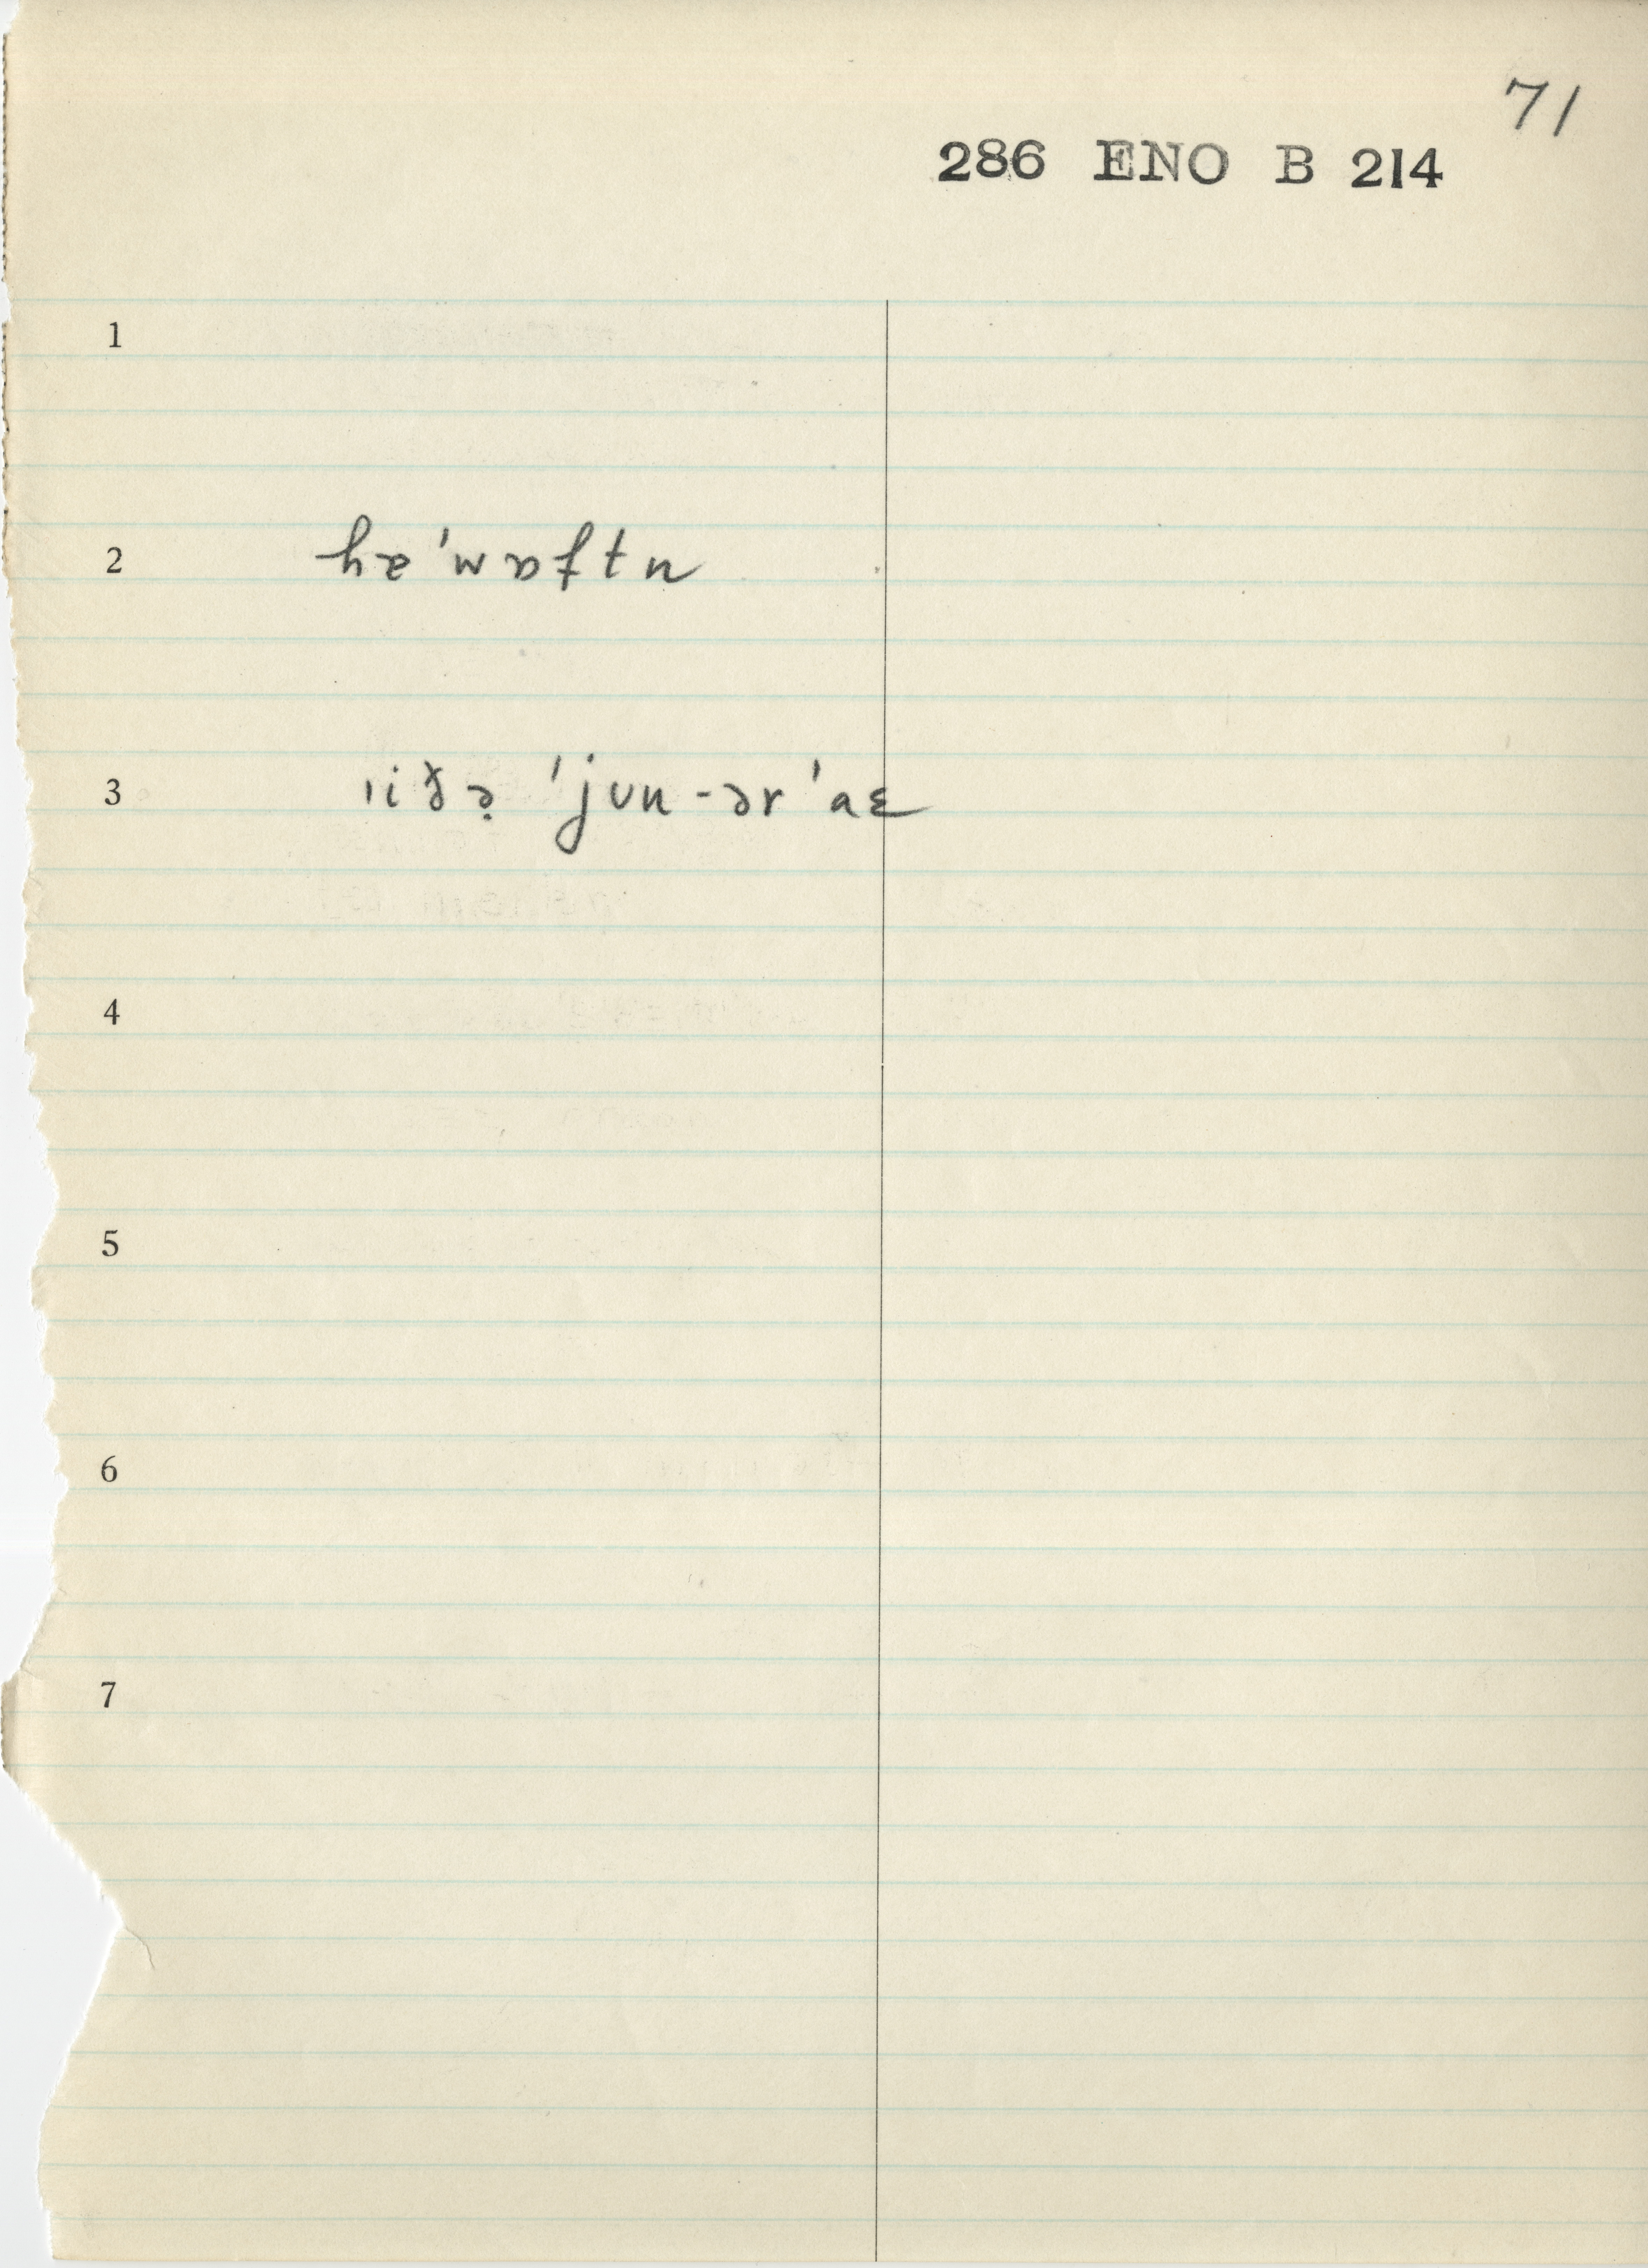 71
286 ENO B 214
1
2 hæˈwɒftn
3 ˈiðə ˈjun-ər ˈaɛ
4
5
6
7